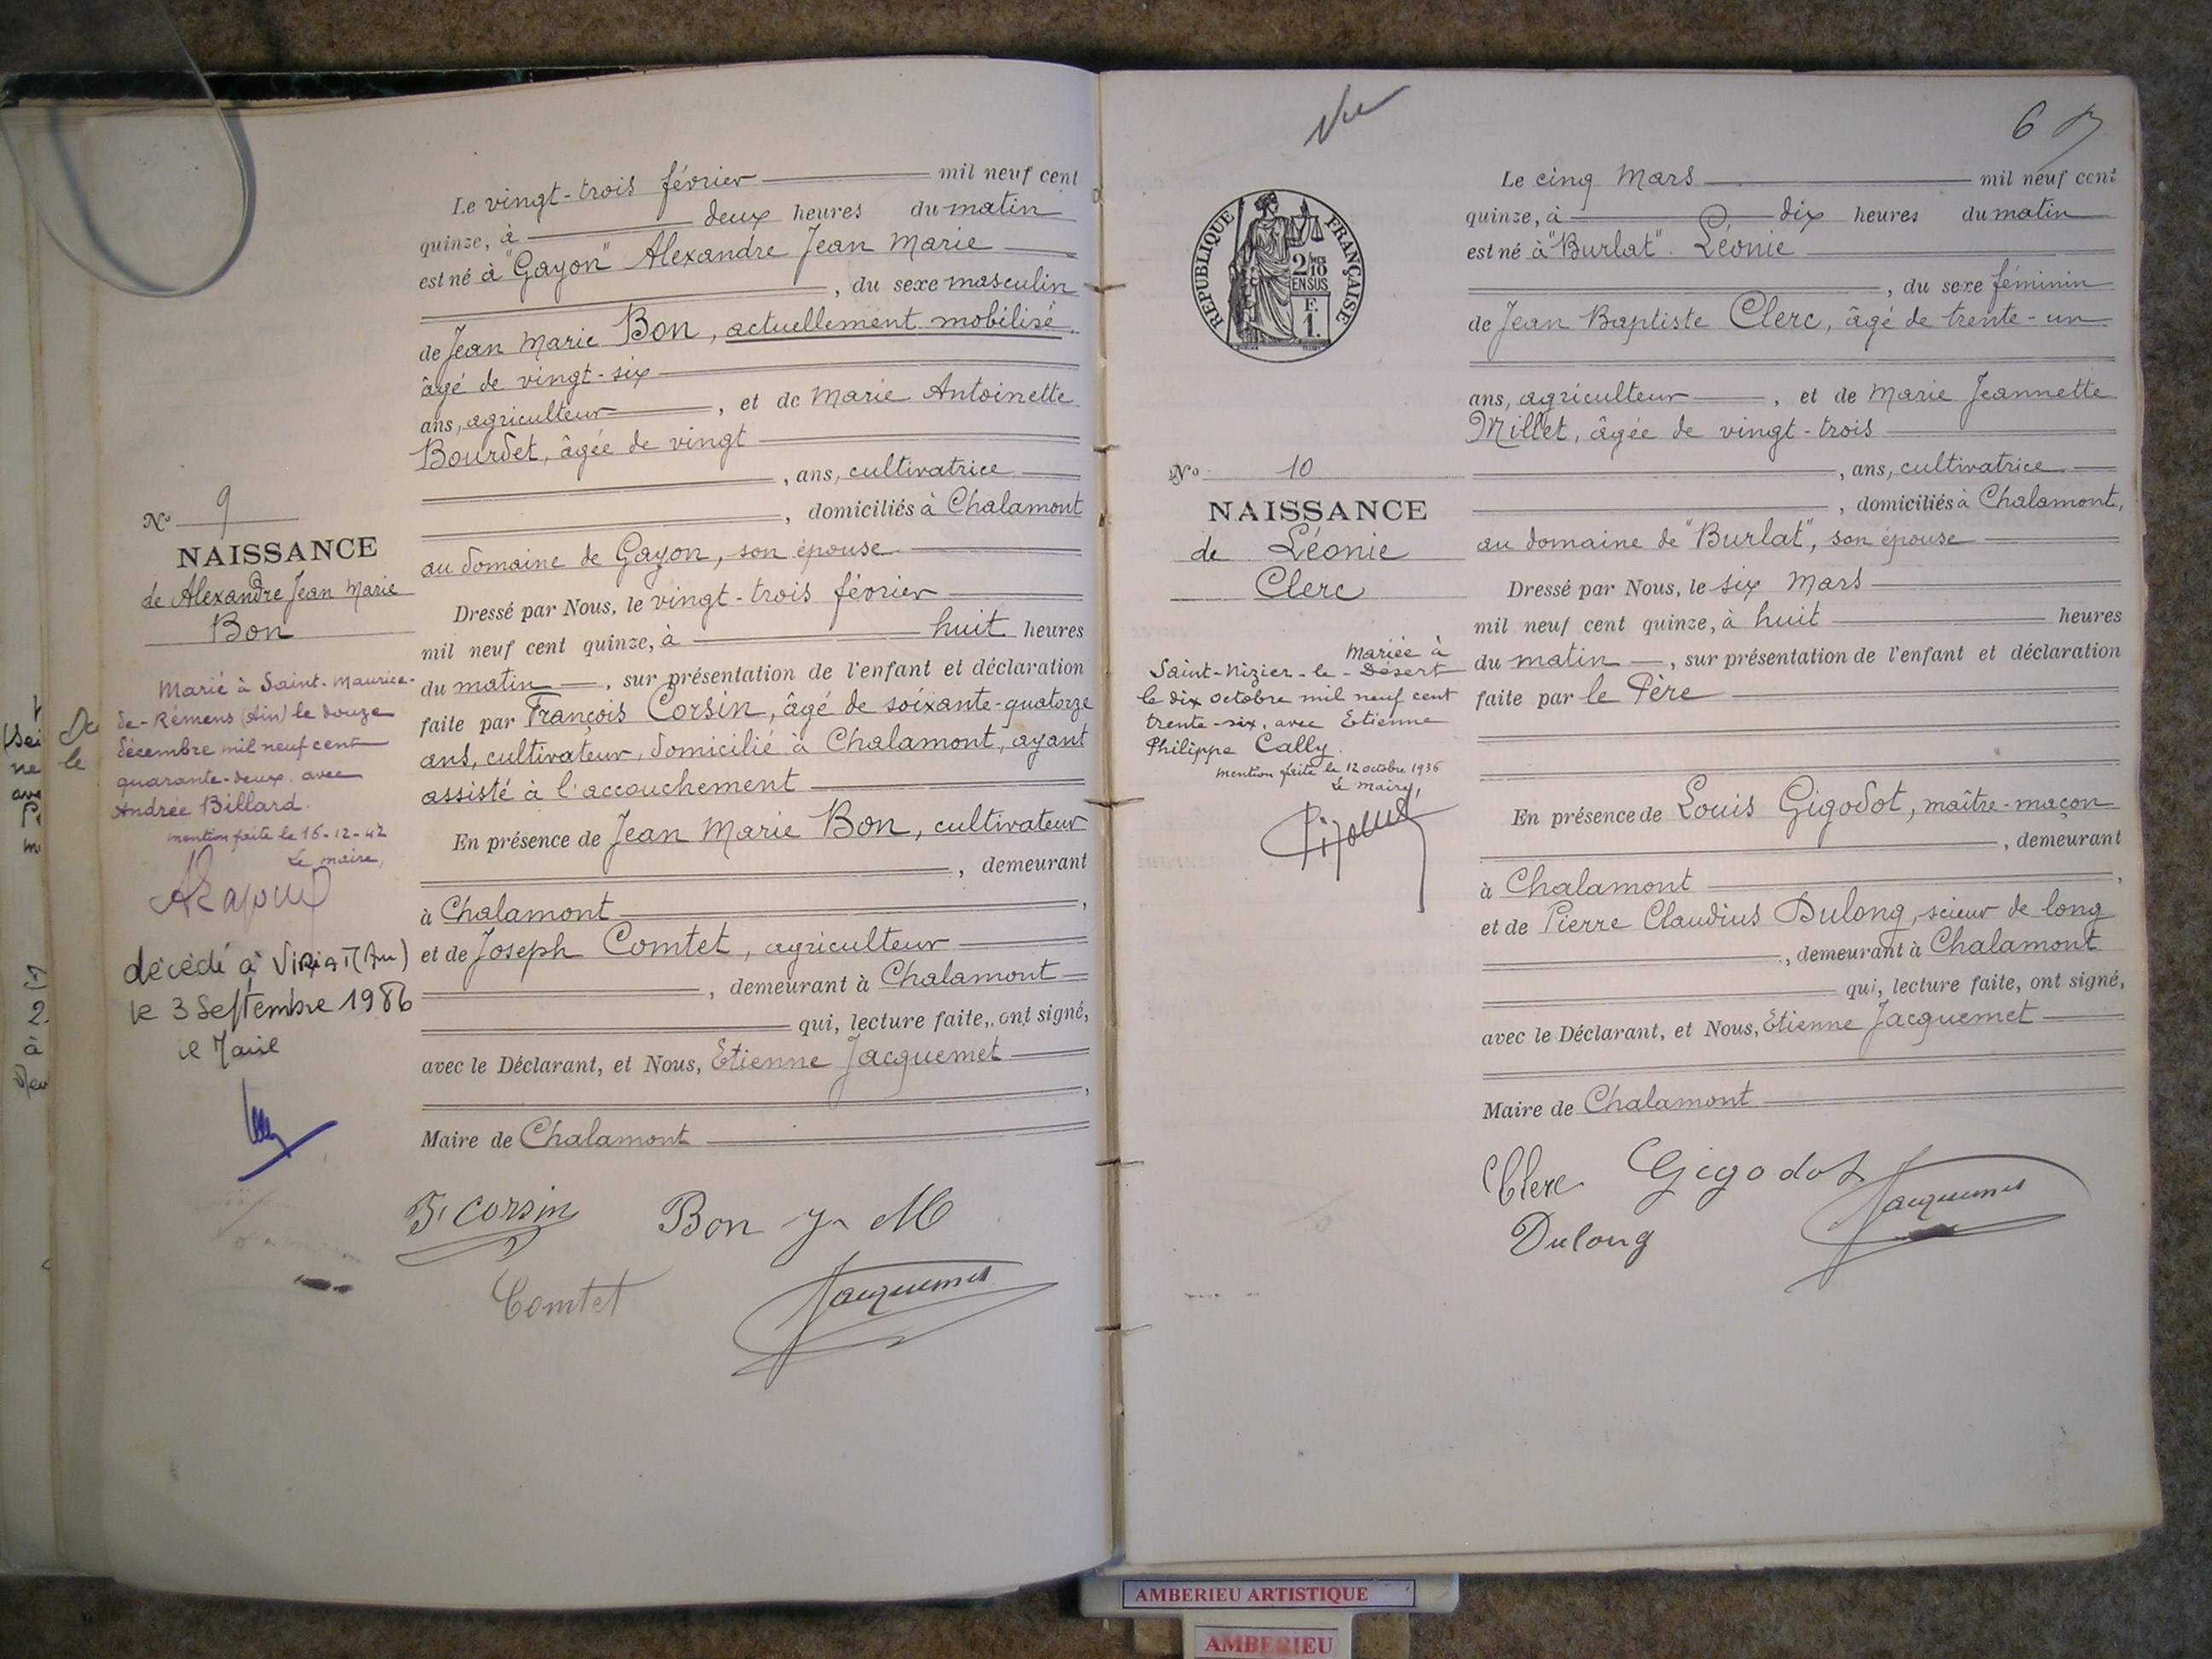 N° 9
NAISSANCE
de Alexandre Jean Marie
Bon
Marié à Saint-Maurice-
de-Rémens (Ain) le douze
décembre mil neuf cent
quarante-deux avec
Andrée Billard.
mention faite le 16-12-42
Le maire,
décédé à VIRIAT (Ain)
le 3 Septembre 1986
le Maire
Le vingt-trois février mil neuf cent
quinze, à deux heures du matin
est né à "Gayon" Alexandre Jean Marie
, du sexe masculin
de Jean Marie Bon, actuellement mobilisé
âgé de vingt-six
ans, agriculteur, et de Marie Antoinette
Bourdet, âgée de vingt
, ans, cultivatrice
, domiciliés à Chalamont
au domaine de Gayon, son épouse
Dressé par Nous, le vingt-trois février
mil neuf cent quinze, à huit heures
du matin, sur présentation de l'enfant et déclaration
faite par François Corsin, âgé de soixante-quatorze
ans, cultivateur, domicilié à Chalamont, ayant
assisté à l'accouchement
En présence de Jean Marie Bon, cultivateur
, demeurant
à Chalamont,
et de Joseph Comtet, agriculteur
, demeurant à Chalamont
qui, lecture faite, ont signé,
avec le Déclarant, et Nous, Etienne Jacquemet
,
Maire de Chalamont
F. Corsin Bon J. M
Comtet Jacquemet
Vu
6
RÉPUBLIQUE FRANÇAISE
2/10
EN SUS
F.
1
N° 10
NAISSANCE
de Léonie
Clerc
Mariée à
Saint-Nizier-le-Désert
le dix octobre mil neuf cent
trente-six, avec Etienne
Philippe Cally.
Mention faite le 12 octobre 1936
Le maire,
Le cinq Mars mil neuf cent
quinze, à dix heures du matin
est né à "Burlat". Léonie
, du sexe féminin
de Jean Baptiste Clerc, âgé de trente-un
ans, agriculteur, et de Marie Jeannette
Millet, âgée de vingt-trois
, ans, cultivatrice
, domiciliés à Chalamont,
au domaine de "Burlat", son épouse
Dressé par Nous, le six Mars
mil neuf cent quinze, à huit heures
du matin, sur présentation de l'enfant et déclaration
faite par le Père
En présence de Louis Gigodot, maître-maçon
, demeurant
à Chalamont,
et de Pierre Claudius Dulong, scieur de long
, demeurant à Chalamont
qui, lecture faite, ont signé,
avec le Déclarant, et Nous, Etienne Jacquemet
Maire de Chalamont
Clerc Gigodot
Dulong Jacquemet
AMBERIEU ARTISTIQUE
AMBERIEU